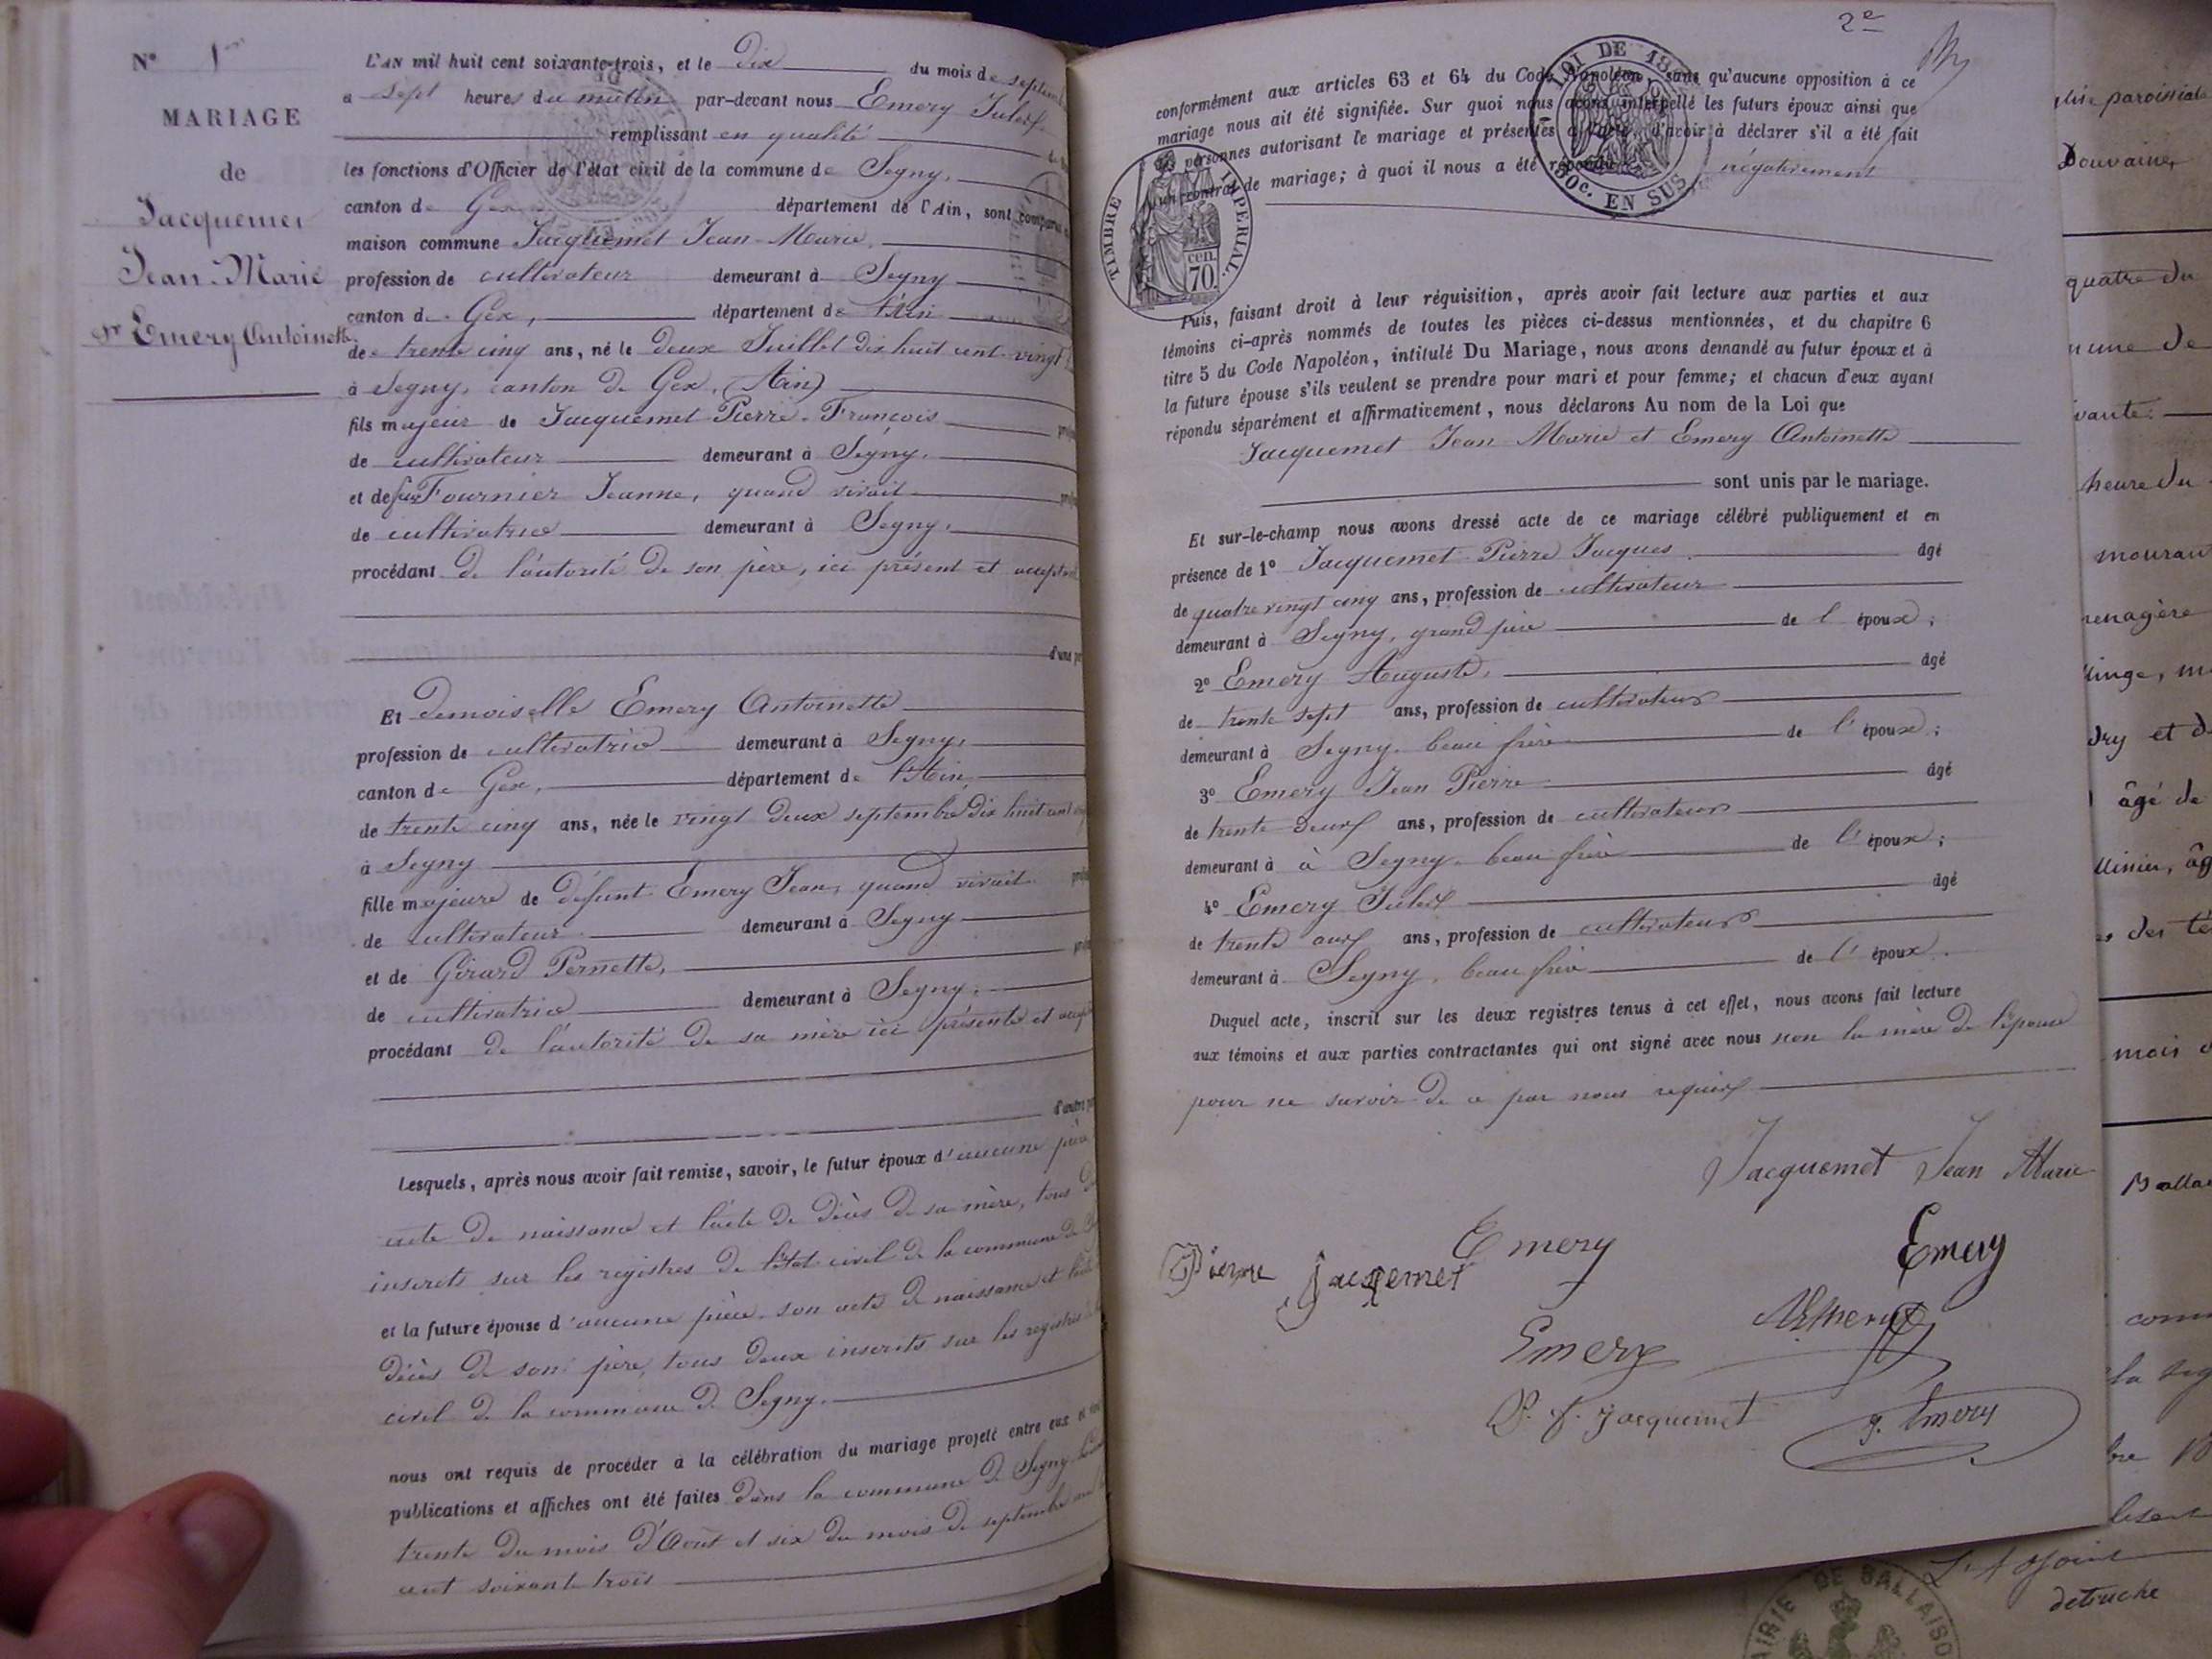 N° 1er
MARIAGE
de
Jacquemet
Jean-Marie
et Emery Antoinette
L'AN mil huit cent soixante-trois, et le Dix du mois de septem
a sept heures du matin par-devant nous Emery Jules
remplissant en qualité
les fonctions d'Officier de l'état civil de la commune de Segny,
canton de Gex département de l'Ain, sont comparus
maison commune Jacquemet Jean-Marie
profession de cultivateur demeurant à Segny
canton de Gex, département de l'Ain
de trente cinq ans, né le deux Juillet dix huit cent vingt
à Segny, canton de Gex, (Ain)
fils majeur de Jacquemet Pierre-François
de cultivateur demeurant à Segny,
et de feue Fournier Jeanne, quand vivait
de cultivatrice demeurant à Segny,
procédant de l'autorité de son père, ici présent et accept
d'une pa
Et demoiselle Emery Antoinette
profession de cultivatrice demeurant à Segny,
canton de Gex, département de l'Ain,
de trente cinq ans, née le vingt deux septembre dix huit cent
à Segny
fille majeure de défunt Emery Jean, quand vivait
de cultivateur demeurant à Segny
et de Gérard Pernette,
de cultivatrice demeurant à Segny,
procédant de l'autorité de sa mère ici présente et accep
d'autre pa
Lesquels, après nous avoir fait remise, savoir, le futur époux d'aucune pièce
acte de naissance et l'acte de décès de sa mère, tous
inscrits sur les registres de l'état civil de la commune de
et la future épouse d'aucune pièce, son acte de naissance et l'acte
décès de son père, tous deux inscrits sur les registres
civil de la commune de Segny.
nous ont requis de procéder à la célébration du mariage projeté entre eux et
publications et affiches ont été faites dans la commune de Segny
trente du mois d'Août et six du mois de septembre
cent soixante trois
2e
conformément aux articles 63 et 64 du Code Napoléon, sans qu'aucune opposition à ce
mariage nous ait été signifiée. Sur quoi nous avons interpellé les futurs époux ainsi que
les personnes autorisant le mariage et présentes à l'acte, d'avoir à déclarer s'il a été fait
un contrat de mariage; à quoi il nous a été répondu négativement
LOI DE 18
50c. EN SUS
TIMBRE IMPÉRIAL.
cen.
70.
Puis, faisant droit à leur réquisition, après avoir fait lecture aux parties et aux
témoins ci-après nommés de toutes les pièces ci-dessus mentionnées, et du chapitre 6
titre 5 du Code Napoléon, intitulé Du Mariage, nous avons demandé au futur époux et à
la future épouse s'ils veulent se prendre pour mari et pour femme; et chacun d'eux ayant
répondu séparément et affirmativement, nous déclarons Au nom de la Loi que
Jacquemet Jean Marie et Emery Antoinette
sont unis par le mariage.
Et sur-le-champ nous avons dressé acte de ce mariage célébré publiquement et en
présence de 1° Jacquemet Pierre Jacques âgé
de quatre vingt cinq ans, profession de cultivateur
demeurant à Segny, grand père de l'époux;
2° Emery Auguste, âgé
de trente sept ans, profession de cultivateur
demeurant à Segny, beau frère de l'époux;
3° Emery Jean Pierre âgé
de trente deux ans, profession de cultivateur
demeurant à à Segny, beau frère de l'époux;
4° Emery Jules âgé
de trente ans, profession de cultivateur
demeurant à Segny, beau frère de l'époux.
Duquel acte, inscrit sur les deux registres tenus à cet effet, nous avons fait lecture
aux témoins et aux parties contractantes qui ont signé avec nous non la mère de l'épouse
pour ne savoir de ce par nous requis
Jacquemet Jean Marie
Emery Emery
Pierre Jacqemet
Emery
P. F. Jacquemet J. Emery
paroissiale
Douvaine,
quatre du
une de
vante.
heure du
mourant
menagère
inge, m
dry et d
âgé de
âg
des té
mois
Balla
com
la
MAIRIE DE BALLAISO
L'Adjoint
detruche